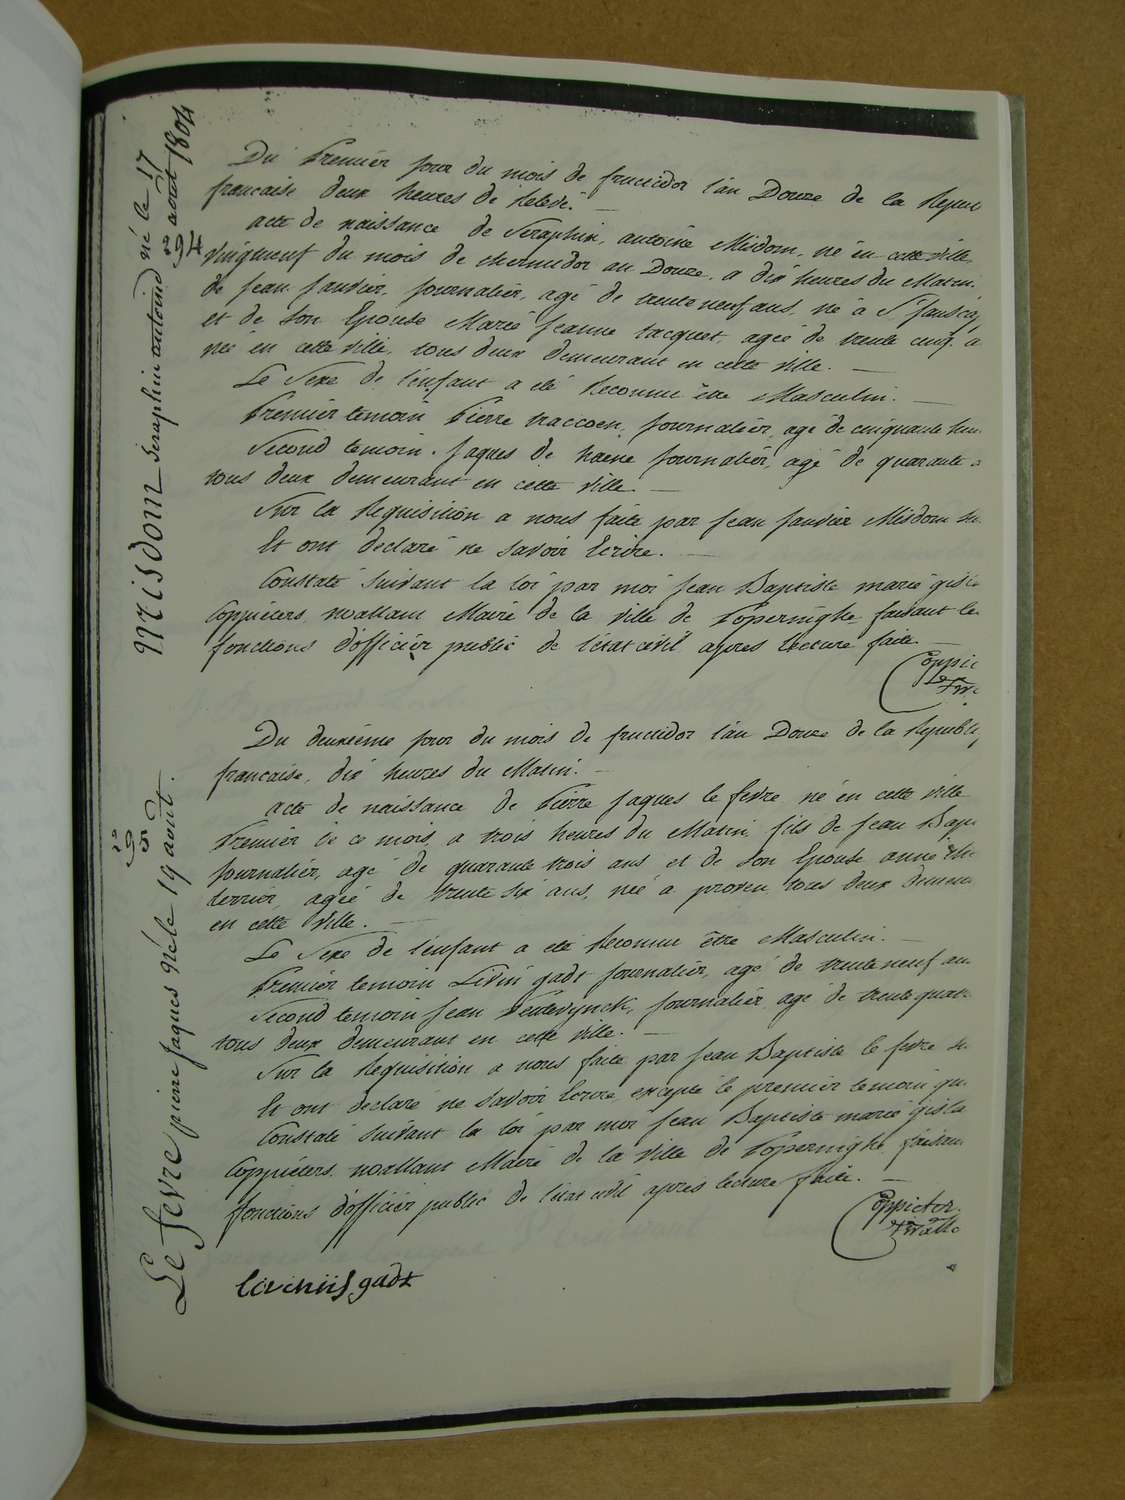 Misdom Seraphin antoine né le 17 aout 1804
294
Du Premier jour du mois de fructidor l'an Douze de la Repu
francaise deux heures de Relevé.
acte de naissance de Seraphin, antoine Misdom, né en cette ville,
vingtneuf du mois de thermidor an Douze, a dix heures du Matin,
de jean janvier, journalier, agé de trente neuf ans, né à St
et de son Epouse Marie jeanne tacquet, agée de trente cinq a
née en cette ville, tous deux demeurant en cette ville.
Le Sexe de l'enfant a eté Reconnu être Masculin.
Premier temoin Pierre vraccoen, journalier, agé de cinquante
Second temoin, jaques de haene journalier, agé de quarante
tous deux demeurant en cette ville.
Sur la Requisition a nous faite par jean janvier Misdom
Et ont declaré ne savoir Ecrire.
Constaté suivant la loi par moi jean Baptiste marie gisl
Coppieters, wallant Maire de la ville de Poperinghe faisant le
fonctions d'officier public de l'état civil apres lecture faite.
Coppie
Le fevre pierre jaques né le 19 aout.
295
Du deuxième jour du mois de fructidor l'an Douze de la Republi
francaise, dix heures du Matin.
acte de naissance de Pierre jaques le fevre né en cette ville
Premier de ce mois, a trois heures du Matin, fils de jean Bap
journalier, agé de quarante trois ans et de son Epouse anne
terrier, agée de trente six ans, née a proven tous deux demeu
en cette ville.
Le Sexe de l'enfant a eté Reconnu être Masculin.
Premier temoin Livin gadt journalier, agé de trente neuf an
Second temoin jean journalier, agé de trente quat
tous deux demeurant en cette ville.
Sur la Requisition a nous faite par jean Baptiste le fevre
Et ont declaré ne savoir Ecrire, excepté le premier temoin qu
Constaté suivant la loi par moi jean Baptiste marie gisla
Coppieters, wallant Maire de la ville de Poperinghe, faisan
fonctions d'officier public de l'état civil apres lecture faite.
Coppieter
Livinüs gadt